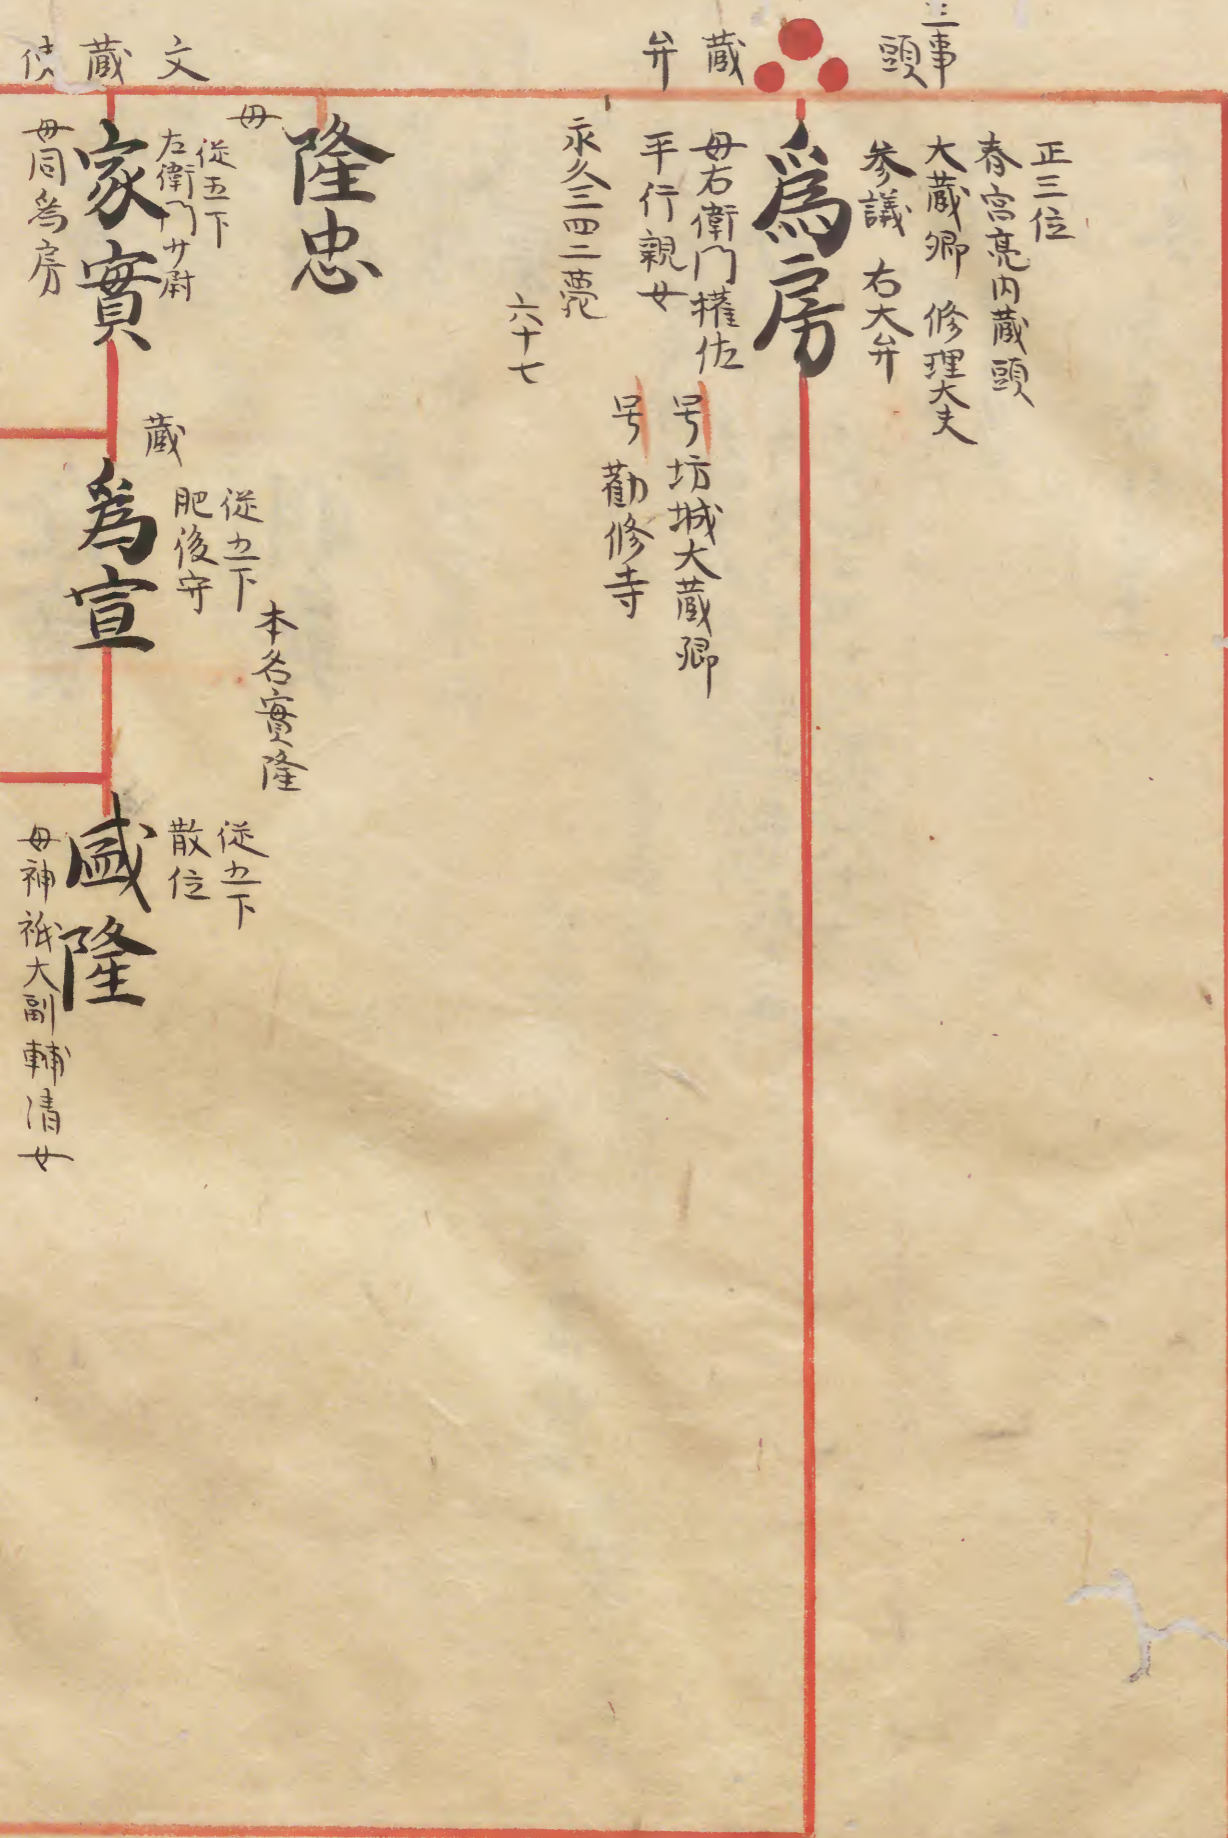 三事
頭
蔵
弁
文
蔵
使
正三位
春宮亮内蔵頭
大蔵卿 修理大夫
参議 右大弁
爲房
母右衛門権佐
平行親女
号坊城大蔵卿
号勸修寺
永久三四二薨
六十七
隆忠
母
從五下
左衛門少尉
家實
母同爲房
蔵
本名實隆
從五下
肥後守
爲宣
從五下
散位
盛隆
母神祇大副輔清女